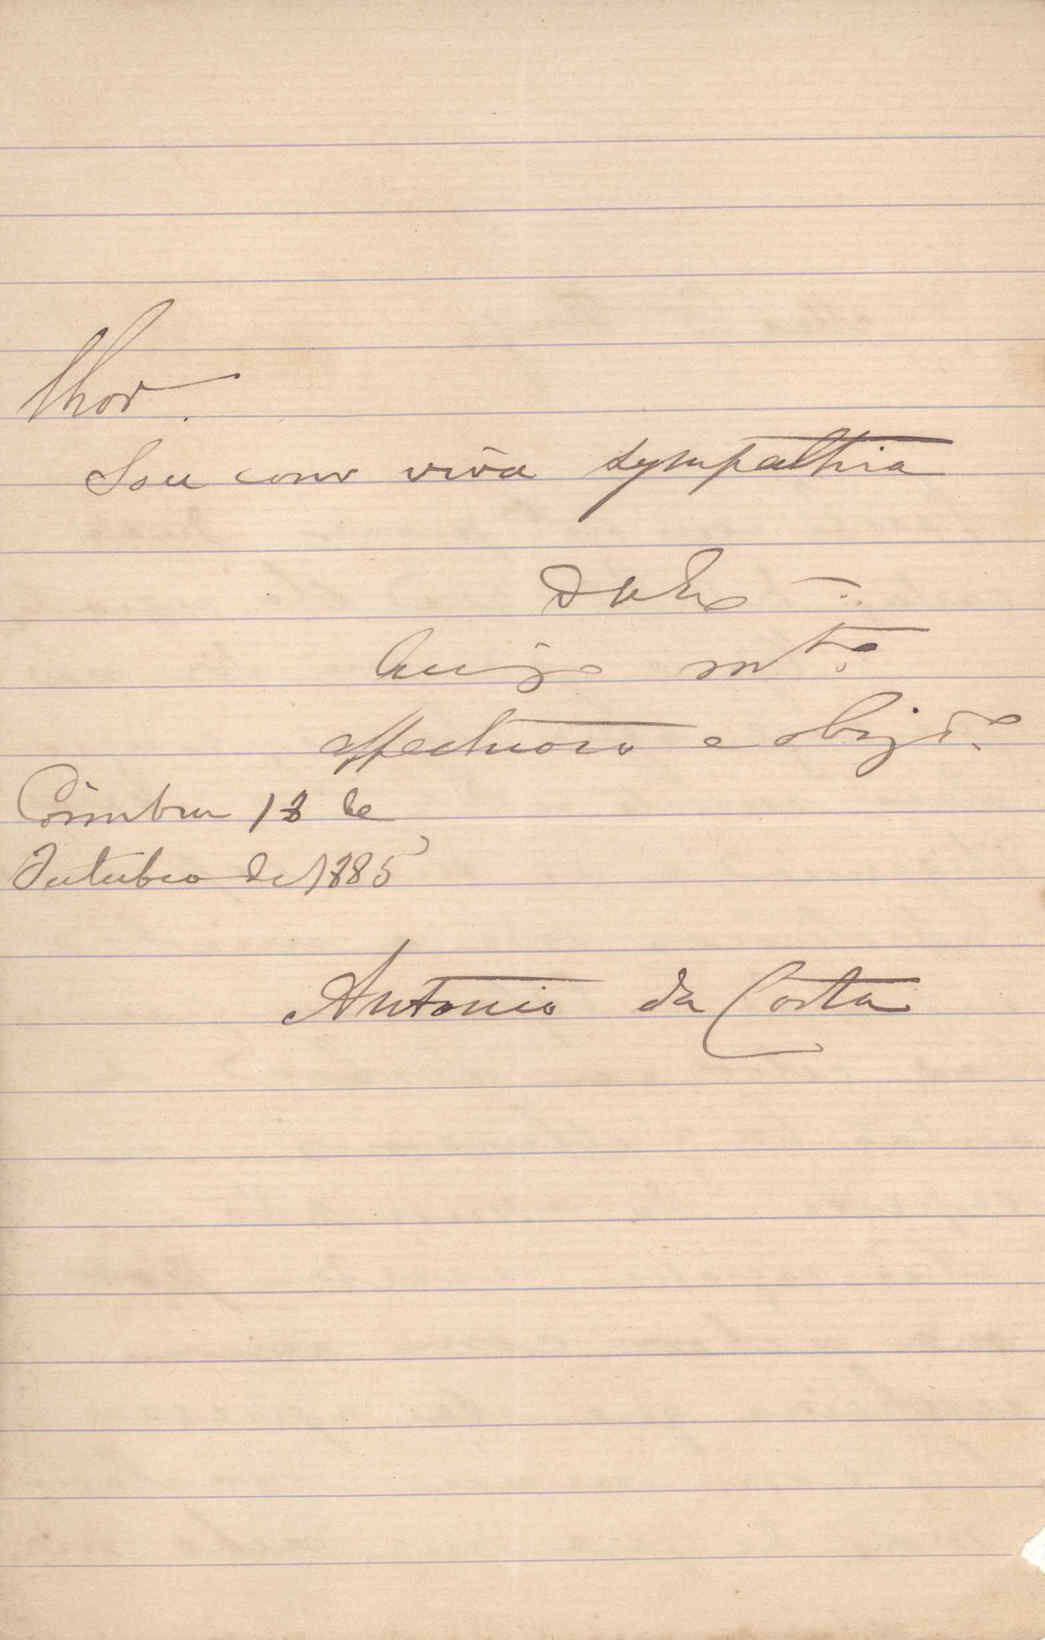 lhor.
Sou com viva sympathia
De V. Ex.ª
Amigo m.to
affectuoso e obrig.do
Coimbra 18 de
Outubro de 1885
Antonio da Costa